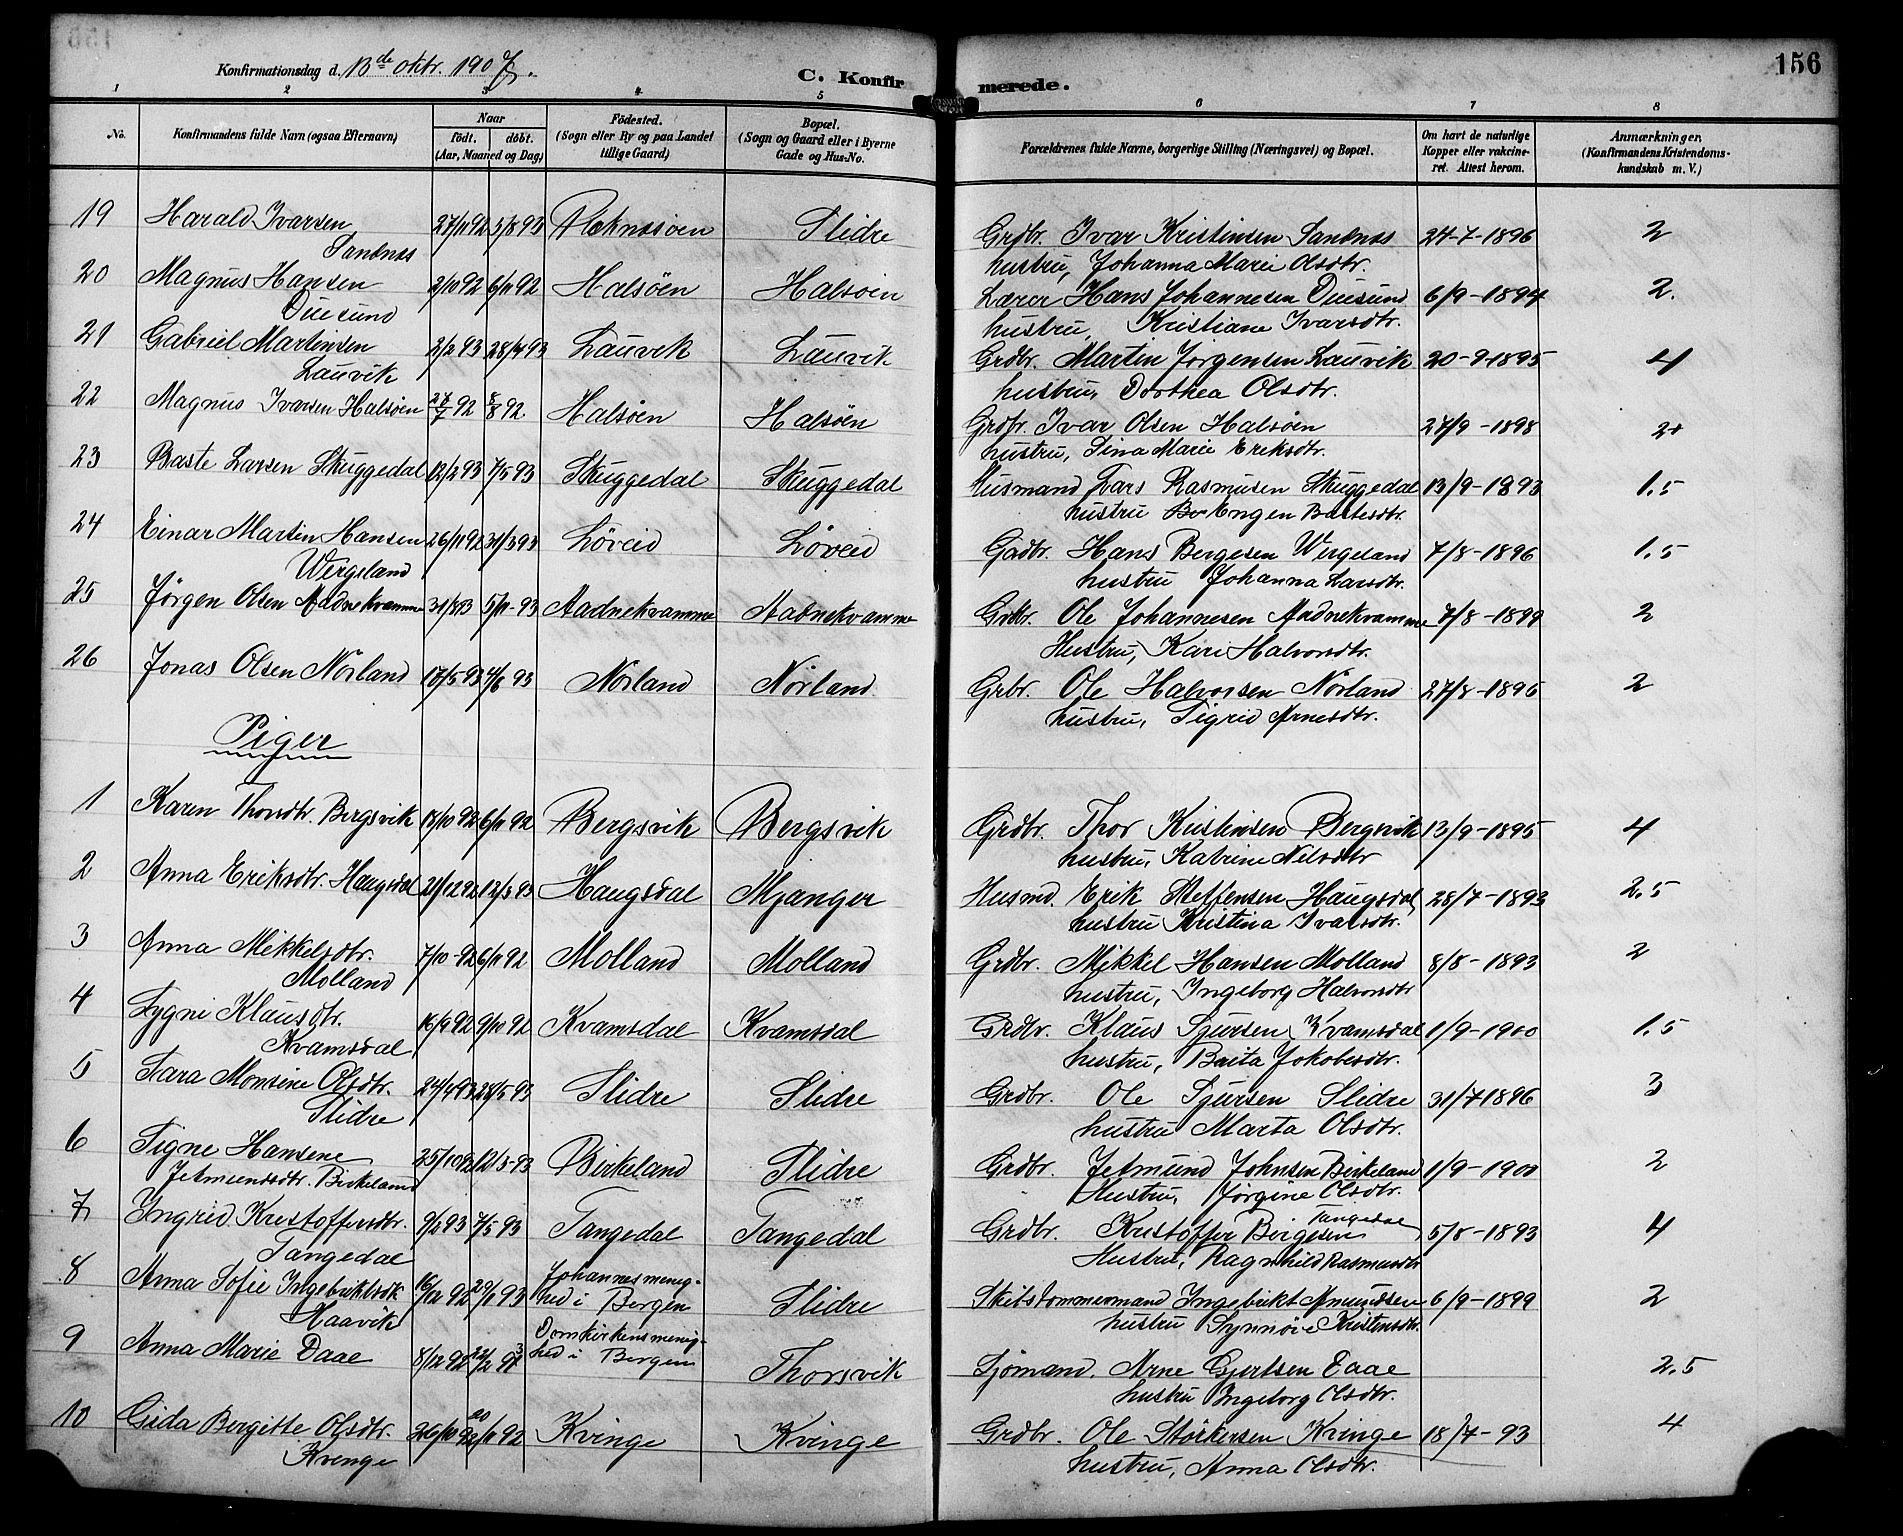 Konfirmationsdag d. 13de oktr. 1907.
C. Konfirmerede.
156
1 2 3 4 5 6 7 8
No.
Konfirmandens fulde Navn (ogsaa Efternavn)
Naar
født. døbt.
(Aar, Maaned og Dag)
Fødested.
(Sogn eller By og paa Landet
tillige Gaard)
Bopæl.
(Sogn og Gaard eller i Byerne
Gade og Hus-No.
Forældrenes fulde Navne, borgerlige Stilling (Næringsvei) og Bopæl.
Om havt de naturlige
Kopper eller vakcine-
ret. Attest herom.
Anmærkninger,
(Konfirmandens Kristendoms-
kundskab m. V.)
19 Harald Ivarsen 27/11 92 5/8 93 Slidre Grdbr. Ivar Kristensen Sandnes 24-7-1896 2
Sandnes hustru, Johanna Marie Olsdtr.
20 Magnus Hansen 2/10 92 6/11 92 Halsöen Halsöen Lærer Hans Johannesen Duesund 6/9-1894 2.
Duesund hustru, Kristiane Ivarsdtr.
21 Gabriel Martinsen 2/2 93 28/4 93 Lauvik Lauvik Grdbr. Martin Jørgensen Lauvik 20-9 1895 4
Lauvik hustru, Dorthea Olsdtr.
22 Magnus Ivarsen Halsöen 27/7 92 8/8 92. Halsöen Halsöen Grdbr. Ivar Olsen Halsöen 27/9-1898 2
hustru, Sina Marie Eriksdtr.
23 Baste Larsen Skuggedal 12/2 93 7/5 93 Skuggedal Skuggedal Husmand Lars Rasmusen Skuggedal 13/9-1893 1.5
hustru Engen Bastesdtr.
24 Einar Martin Hansen 26/11 92 31/3 93 Löveid Löveid Gadbr. Hans Bergesen Wergeland 7/8-1896 1.5
Wergeland hustru Johanna Larsdtr.
25 Jørgen Olsen Aadnekvamme 31/8 93 5/11-93 Aadnekvamme Aadnekvamme Grdbr. Ole Johannesen Aadnekvamme 7/8-1899 2
Hustru, Kari Halvorsdtr.
26 Jonas Olsen Nörland 18/5 93 4/6 93 Nörland Nörland Grbr. Ole Halvorsen Nörland 27/8-1895 2
hustru, Sigrid Arnesdtr.
Piger
1 Karen Thorsdtr. Bergsvik 12/10 92 6/11 92 Bergsvik Bergsvik Grdbr. Thor Kristensen Bergsvik 13/9-1895 4
hustru, Katrine Nelsdtr
2 Anna Eriksdtr. Haugsdal 21/12 92 12/3 93 Haugsdal Mjanger Husmd. Erik Steffensen Haugsdal, 28/7-1893 2.5
hustru Kristina Ivarsdtr.
3 Anna Mikkelsdtr. 7/10-92 6/11 92 Molland Molland Grdbr. Mikkel Hansen Molland 8/8-1893 2
Molland hustru, Ingeborg Halvorsdtr
4 Sygni Klausdtr. 16/9 92 9/10 92 Kvamsdal Kvamsdal Grdbr. Klaus Sjursen Kvamsdal 1/9-1900 1.5
Kvamsdal hustru, Brita Jakobsdtr.
5 Sara Monsine Olsdtr. 24/4 93 28/5 93 Slidre Slidre Grdbr. Ole Sjursen Slidre 31/7 1896 3
Slidre hustru Marta Olsdtr.
6 Signe Hansene 25/10 92 12/3-93 Birkeland Slidre Grdbr. Jetmund Johnsen Birkeland 1/9-1900 2
Jetmundsdtr. Birkeland Hustru, Jørgine Olsdtr.
7 Ingrid Kristoffersdtr. 9/2 93 7/5 93 Tangedal Tangedal Grdbr. Kristoffer Birgesen Tangedal 5/8-1893 4
Tangedal Hustru, Ragnhild Rasmusdtr
8 Anna Sofie Ingebriktsdtr 16/12 92 29/1 93 Johannesmenig-
hed i Bergen Slidre Skibstømmermand Ingebrikt Amundsen 6/9-1899 2
Haavik hustru Synnöve Kristensdtr.
9 Anna Marie Daae 8/12 92 Domkirkensmenig-
hed i Bergen Thorsvik Sjömand. Arne Gjertsen Daae 2.5
hustru Ingeborg Olsdtr.
10 Gida Bergitte Olsdtr. 26/10 92 20/11 92 Kvinge Kvinge Grdbr. Ole Störkersen Kvinge 18/7-93 4
Kvinge hustru, Anna Olsdtr.